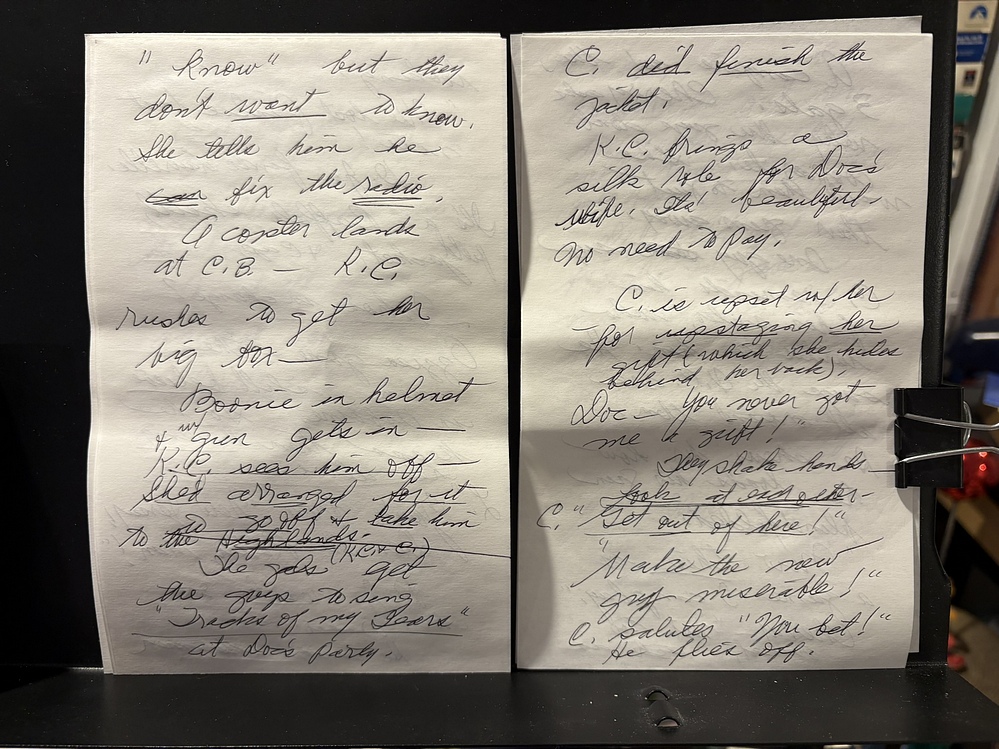 " know" but they
don't want to know.
She tells him he
can fix the radio.
A copter lands
at C.B. — K.C.
rushes to get her
big box —
Boonie in helmet
& w/ gun gets in —
K.C. sees him off —
She'd arranged for it
to go off & take him
to the Highlands.
The gals (K.C. & C.) get
the guys to sing
"Tracks of my Tears"
at Doc's party.
C. did finish the
jacket.
K.C. brings a
silk robe for Doc's
wife. It's beautiful.
No need to pay.
C. is upset w/ her
for upstaging her
gift (which she hides
behind her back).
Doc — You never got
me a gift!"
They shake hands —
Look at each other.
C. "Get out of here!"
"Make the new
guy miserable!"
C. salutes "You bet!"
He flies off.